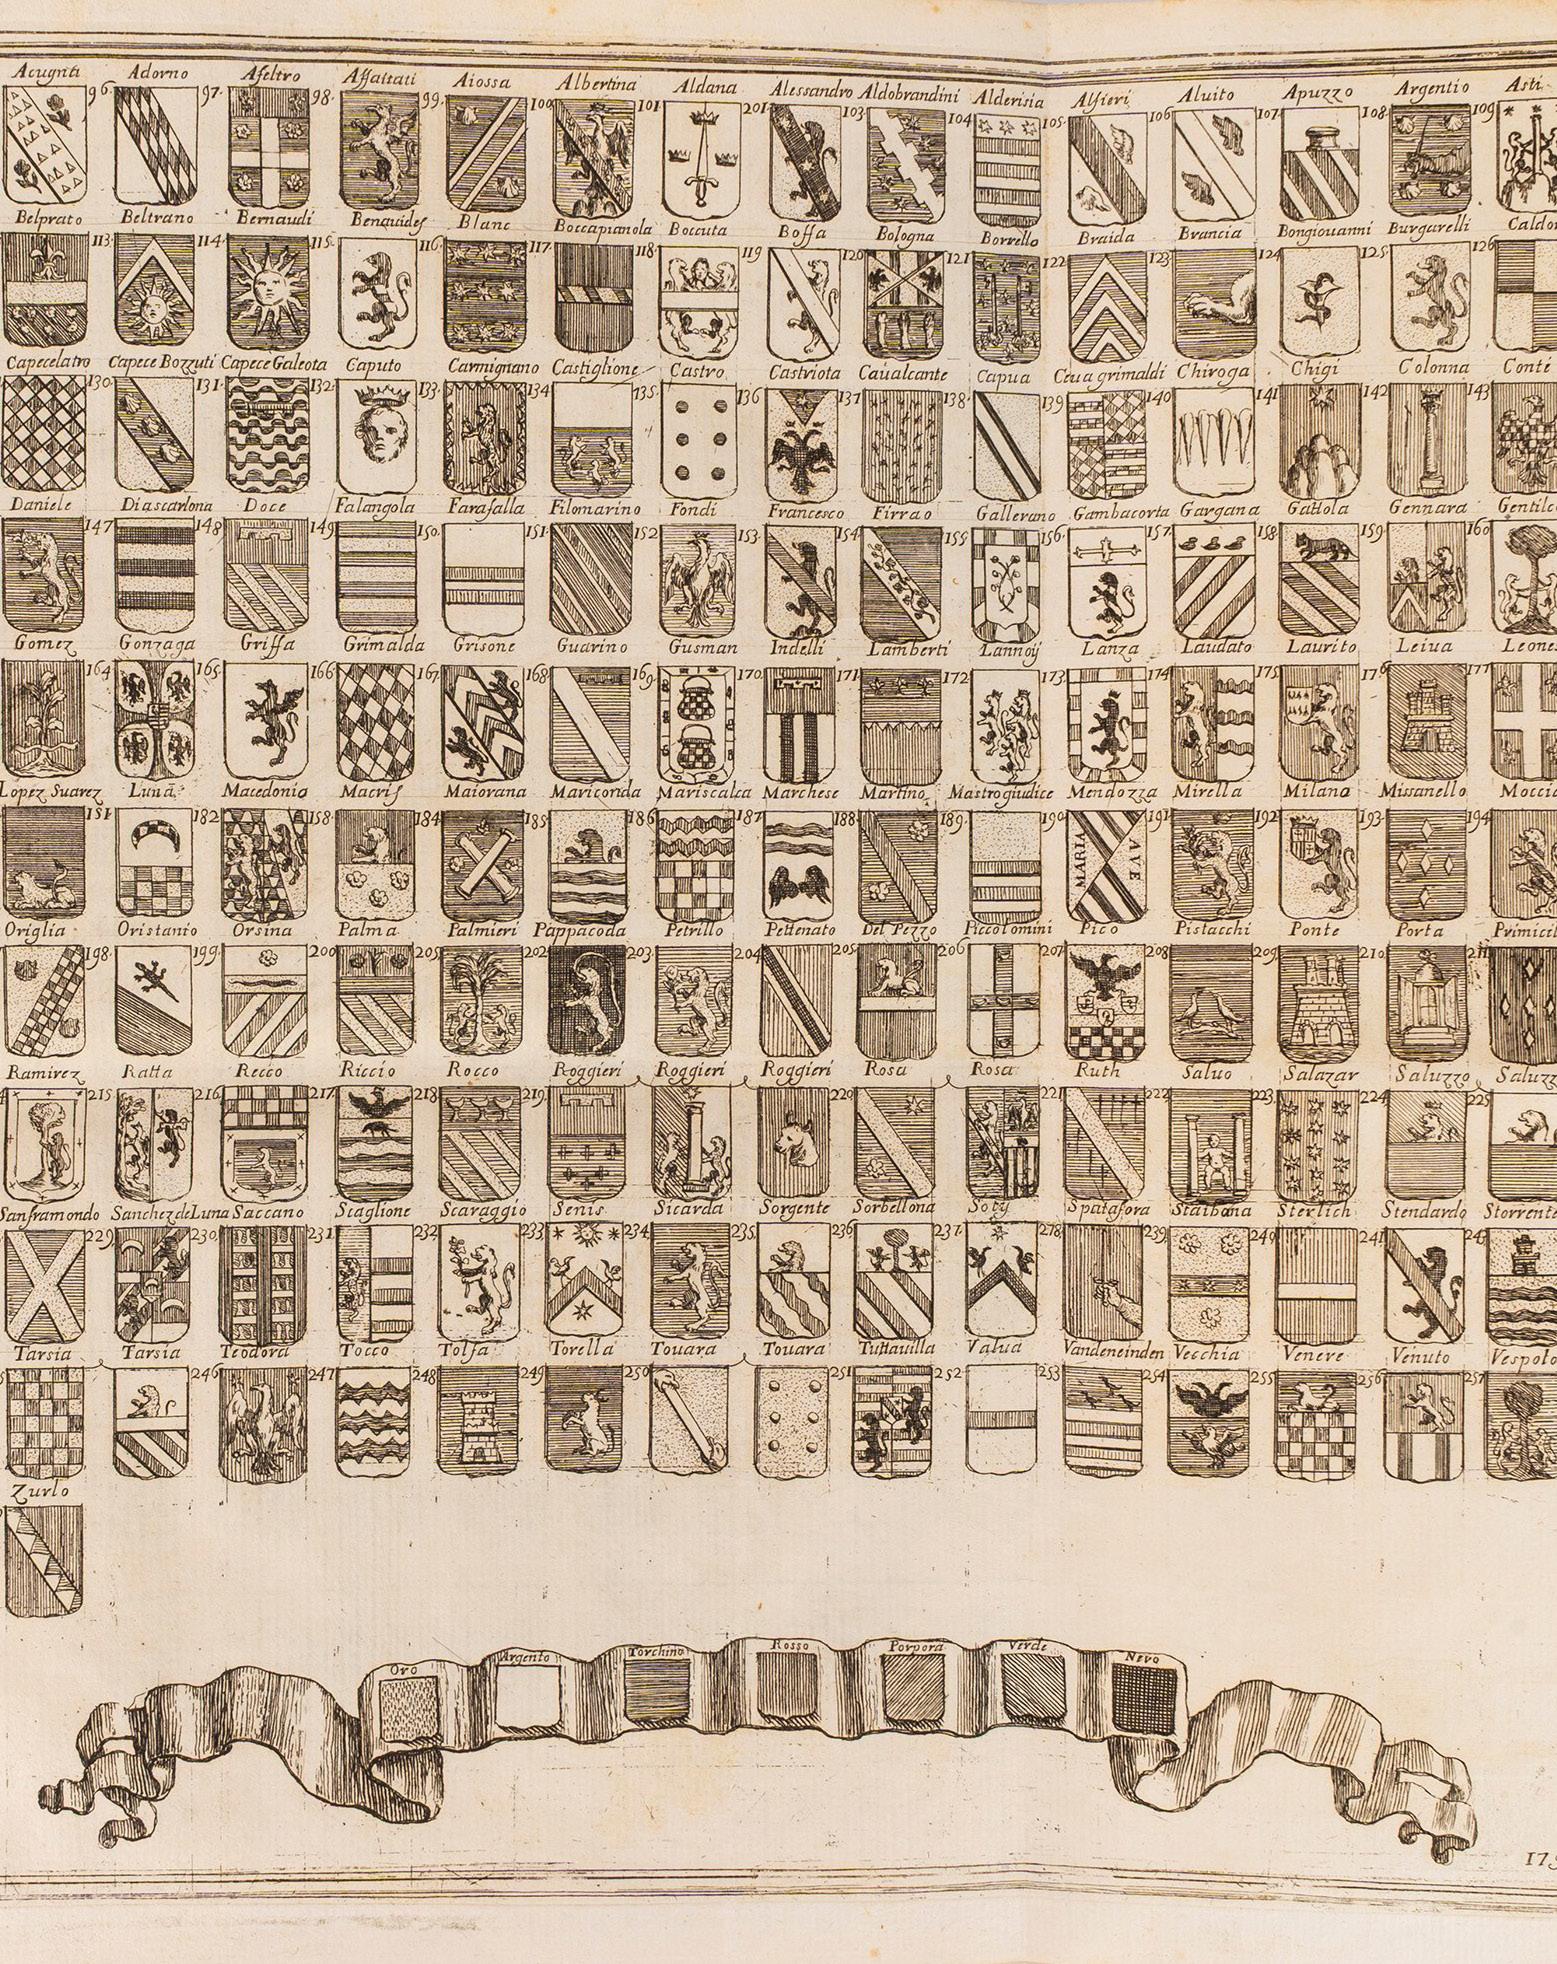 Acugnti Adorno Afeltro Affaitati Aiossa Albertina Aldana Alessandro Aldobrandini Alderisia Alfieri Aluito Apuzzo Argentio Asti
96. 97. 98. 99. 100. 101. 201. 103. 104. 105. 106. 107. 108. 109.
Belprato Beltrano Bernaudi Benauides Blanc Boccapianola Boccuta Bossa Bologna Borrello Braida Brancia Bongiouanni Burgarelli
113. 114. 115. 116. 117. 118. 119 120 121. 122. 123. 124 125. 126
Capecelatro Capece Bozzuti Capece Galeota Caputo Carmignano Castiglione Castro Castriota Caualcante Capua Ceua grimaldi Chiroga Chigi Colonna Conti
130. 131. 132. 133. 134 135. 136 137 138. 139 140. 141 142. 143
Daniele Diascarlona Doce Falangola Farafalla Filomarino Fondi Francesco Firrao Gallerano Gambacorta Gargana Gattola Gennara
147. 148. 149. 150. 151. 152 153. 154. 155 156. 157. 158. 159. 160
Gomez Gonzaga Griffa Grimalda Grisone Guarino Gusman Indelli Lamberti Lannoij Lanza Laudato Laurito Leiua
164 165. 166 167. 168. 169. 170. 171. 172. 173. 174. 175. 176. 177
Lopez Suarez Luna Macedonio Macris Maiorana Mariconda Mariscalca Marchese Martino Mastrogiudice Mendozza Mirella Milano Missanello
151. 182 158. 184 185. 186. 187. 188. 189. 190. 191. 192. 193. 194
MARIA AVE
Origlia Oristanio Orsina Palma Palmieri Pappacoda Petrillo Pettenato Del Pezzo Piccolomini Pico Pistacchi Ponte Porta
198. 199. 200 205. 202. 203. 204. 205. 206 207. 208. 209. 210. 211.
Ramirez Ratta Recco Riccio Rocco Roggieri Roggieri Roggieri Rosa Rosa Ruth Saluo Salazar Saluzzo
215. 216. 217. 218. 219. 220. 221. 222. 223. 224 225.
Sanframondo Sanchez de Luna Saccano Scaglione Scaraggio Senis Sicarda Sorgente Sorbellona Soty Spatafora Staibana Sterlich Stendardo
229. 230. 231. 232. 233. 234. 235. 236. 237. 278. 239. 240. 241. 243
Tarsia Tarsia Teodora Tocco Tolfa Torella Touara Touara Tuttauilla Valua Vandeneinden Vecchia Venere Venuto
246. 247. 248. 249. 250. 251. 252. 253. 254. 255. 256. 257.
Zurlo
Oro Argento Torchino Rosso Porpora Verde Nero